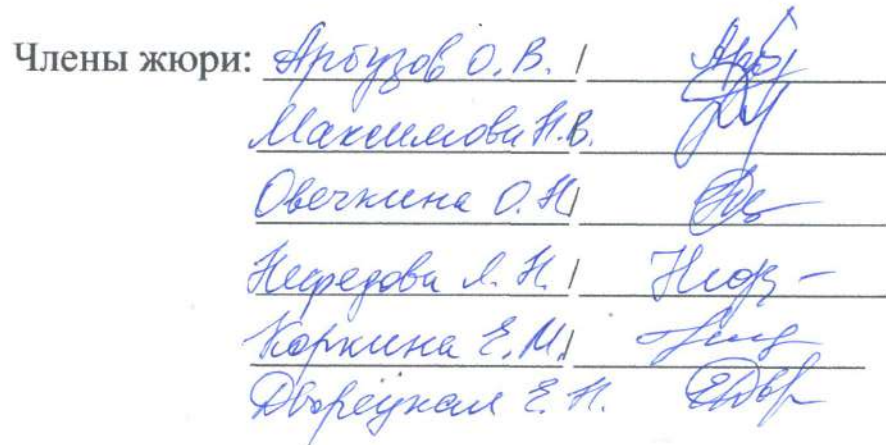 Члены жюри: Арбузов О. В. /
Максимова Н.В.
Овечкина О. Н /
Нефедова Л. Н. /
Коркина Е. М. /
Дворецкая Е. Н.